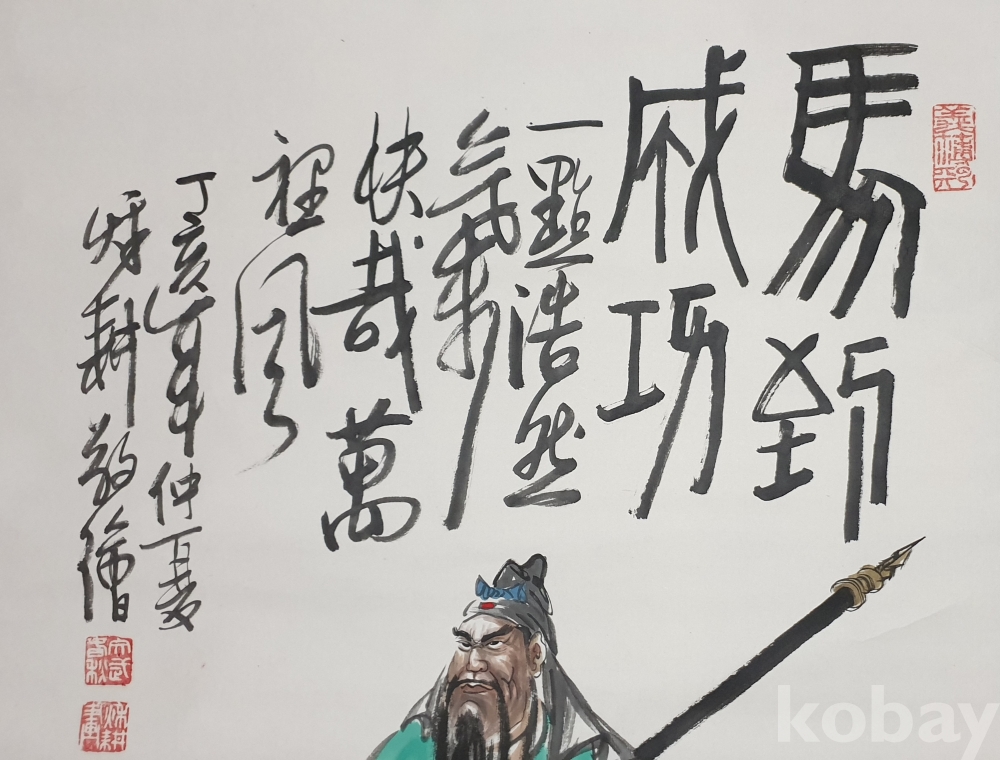 馬到
成功
一點浩然
氣
快哉萬
裡風
丁亥年仲夏
耕敬繪
kobay